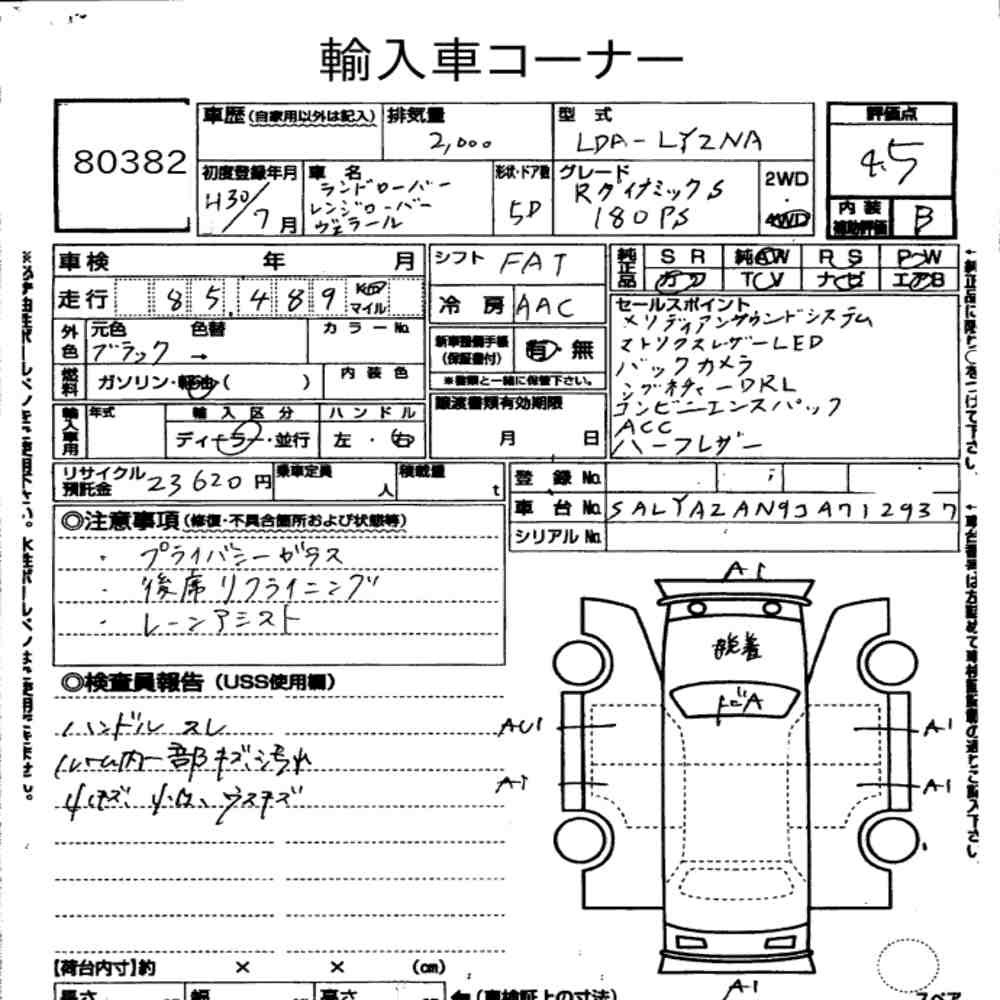 輸入車コーナー
80382
車歴(自家用以外は記入)
排気量
2,000
型 式
LDA-LY2NA
評価点
4.5
初度登録年月
H30/7月
車 名
ランドローバー
レンジローバー
ヴェラール
形状・ドア数
5D
グレード
RダイナミックS
180PS
2WD
・
4WD
内 装
補助評価
B
車検 年 月
シフト
FAT
純正品
SR 純AW RS PW
カワ TV ナビ エアB
走行
85,489
Km
マイル
冷 房
AAC
セールスポイント
メリディアンサウンドシステム
マトリクスレザーLED
バックカメラ
シグネチャーDRL
コンビニエンスパック
ACC
ハーフレザー
外色
元色 色替
ブラック →
カラーNo.
新車整備手帳
(保証書付)
有・無
※書類と一緒に保管下さい。
燃料
ガソリン・軽油( )
内 装 色
輸入車用
年式
輸 入 区 分
ディーラー・並行
ハ ン ド ル
左 ・ 右
譲渡書類有効期限
月 日
リサイクル
預託金
23620円
乗車定員
人
積載量
t
登 録 No.
車 台 No.
SALYA2AN9JA712937
シリアル No.
◎注意事項(修復・不具合箇所および状態等)
・ プライバシーガラス
・ 後席リクライニング
・ レーンアシスト
◎検査員報告(USS使用欄)
ハンドルスレ
ルーム内一部キズ、汚れ
小キズ、小凹、ウスキズ
A1
脱着
AU1
A1
A1
A1
A1
【荷台内寸】約 × × (cm)
長さ 幅 高さ
(車検証上の寸法)
スペア